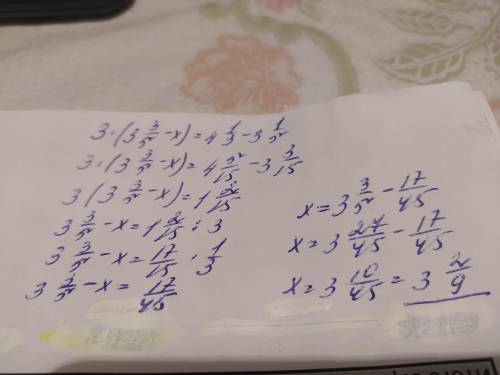 3·(3 3/5 - x) = 4 1/3 - 3 1/5
3·(3 3/5 - x) = 4 5/15 - 3 3/15
3(3 3/5 - x) = 1 2/15
3 3/5 - x = 1 2/15 : 3
3 3/5 - x = 17/15 · 1/3
3 3/5 - x = 17/45
x = 3 3/5 - 17/45
x = 3 27/45 - 17/45
x = 3 10/45 = 3 2/9